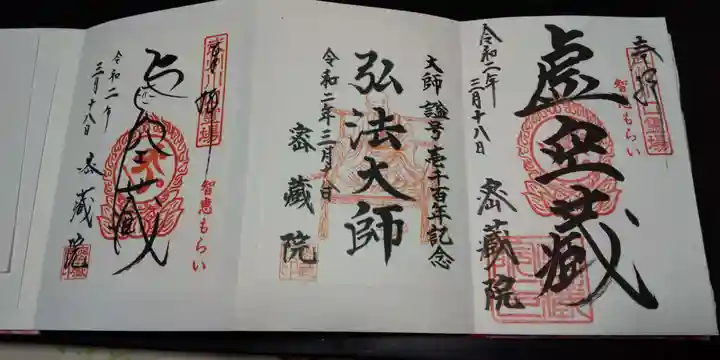 奉拝
智恵もらい
虚空蔵
密蔵院
令和二年
三月十八日
大師諡号壱千百年記念
弘法大師
令和二年三月十八日
密蔵院
奉拝
智恵もらい
虚空蔵
令和二年
三月十八日
密蔵院